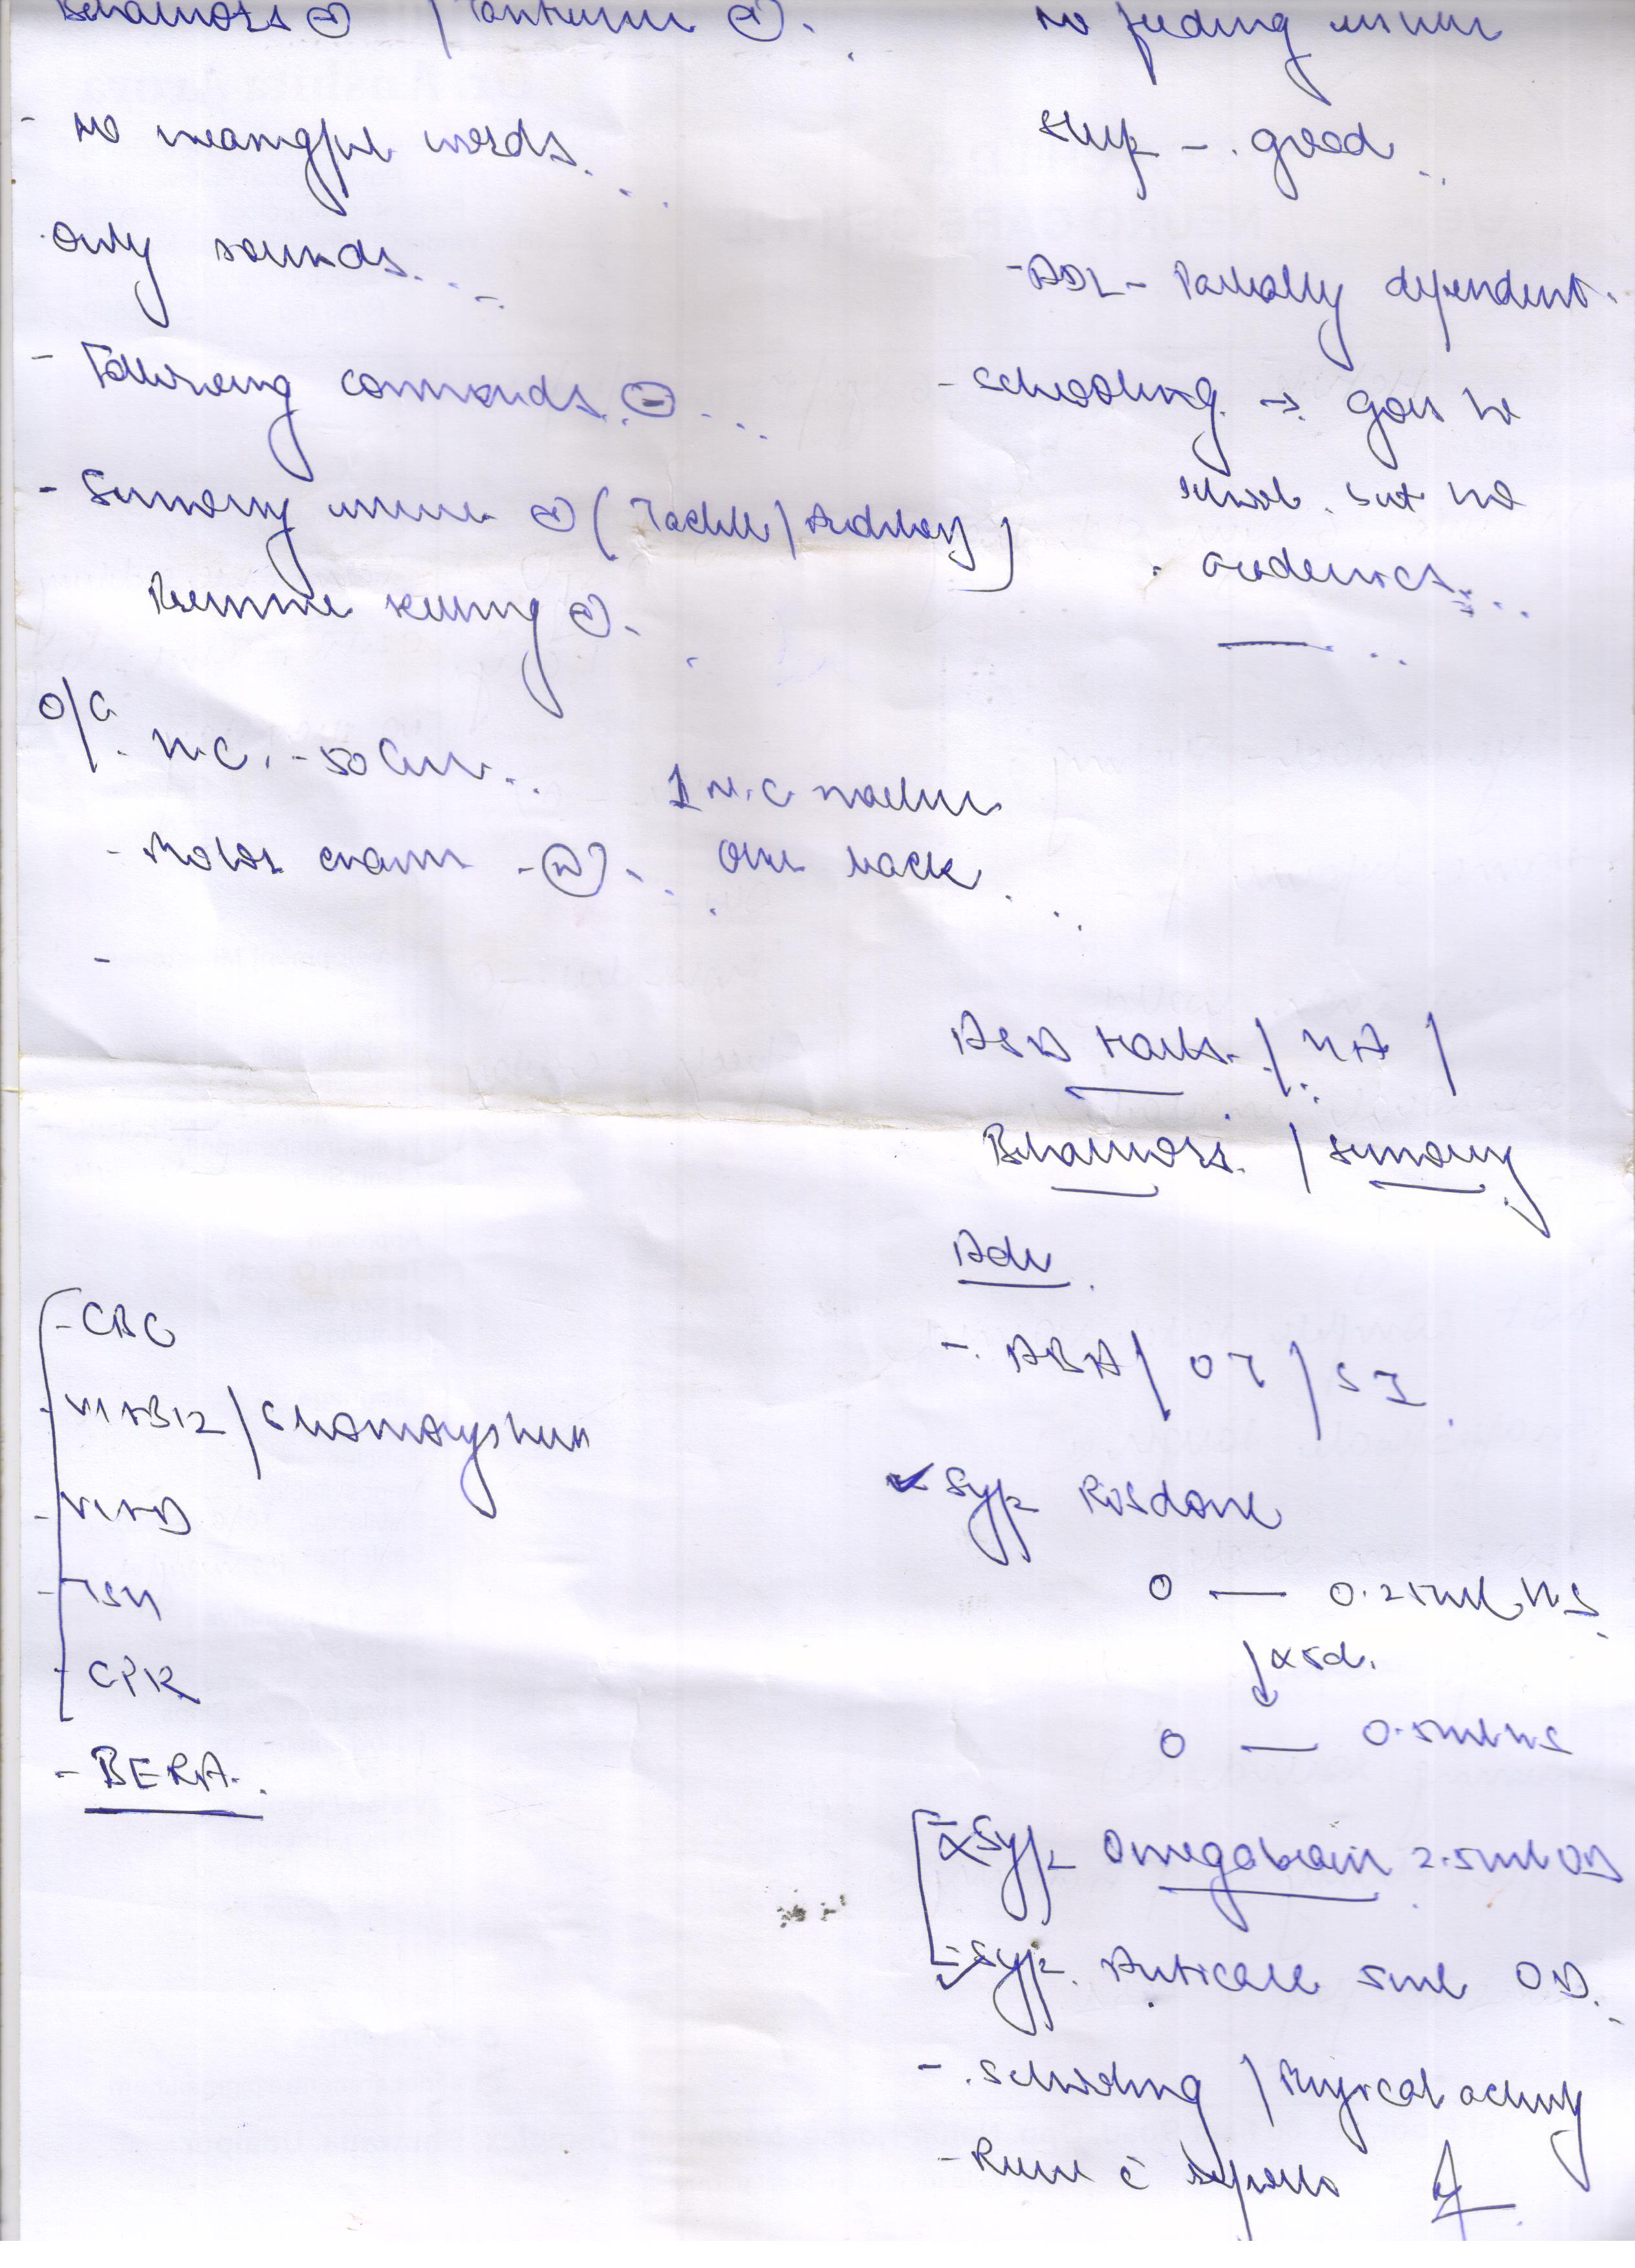 Behaviors ⊕ / Tantrums ⊕.
- No meaningful words.
only sounds.
- Following commands ⊖.
- Sensory issues ⊕ (Tactile / Auditory)
Pressure seeking ⊕.
O/E. H.C. - 50 cm.
- Motor exam - (N).
1 N.C. macule
over back
No feeding issues
Sleep - good
- ADL - Partially dependent.
- Schooling → goes to
school but no
academics.
ASD traits / HA /
Behaviors / Sensory
Adv
- ABA / OT / SI
- Syp Risdone
0 — 0.25ml HS
↓ x 5d.
0 — 0.5ml HS
- Syp Omegabrain 2.5ml OD
- Syp. 5ml OD.
- Schooling / Physical activity
- Review c̄ reports
- CBC
- Vit B12 / Homocysteine
- Vit D
- TSH
- CPK
- BERA.